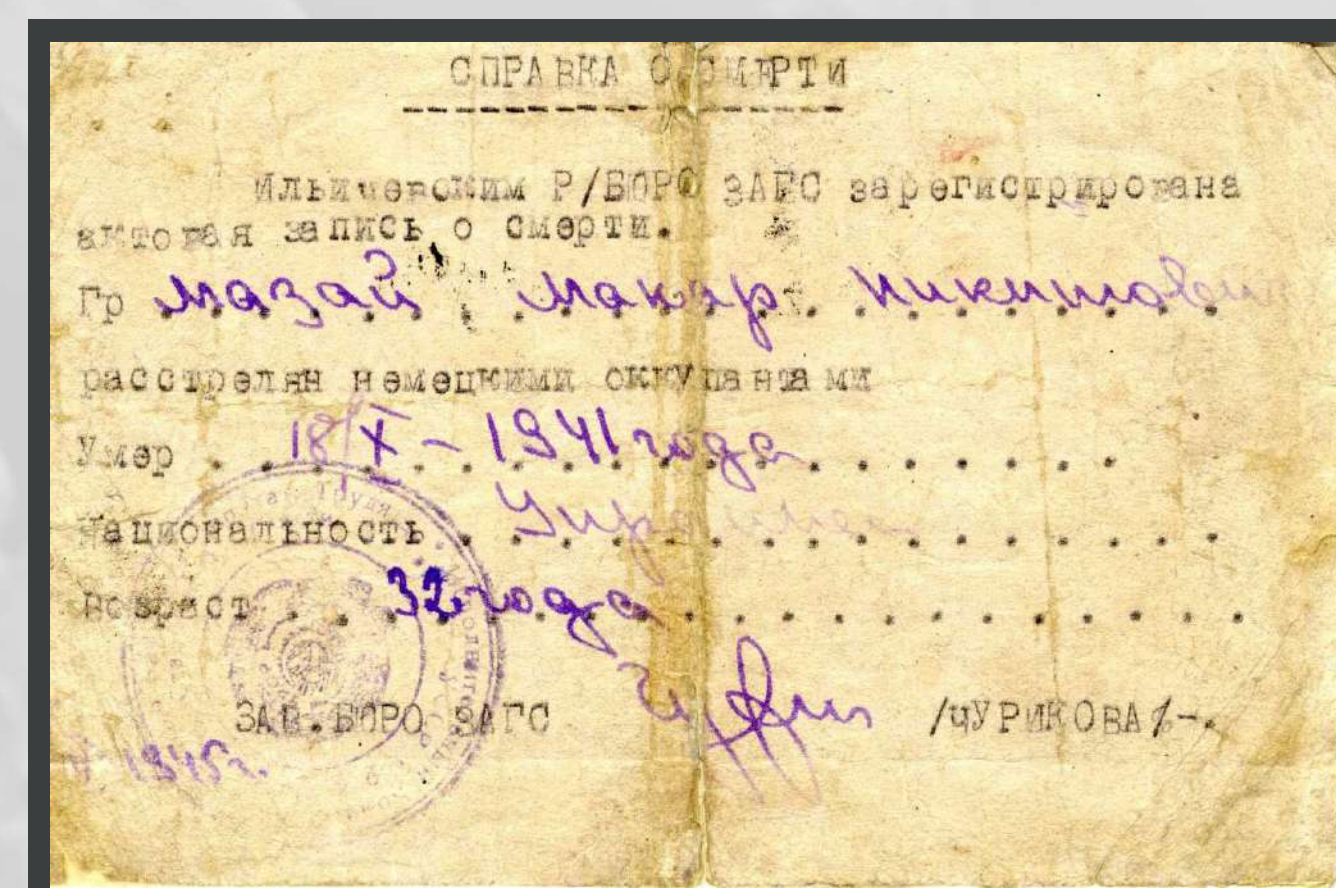 СПРАВКА О СМЕРТИ
Ильичевским Р/БЮРО ЗАГС зарегистрирована
актовая запись о смерти.
Гр Мазай Макар Никитович
расстрелян немецкими оккупантами
Умер 18/X - 1941 года
Национальность Украинец
Возраст 32 года
ЗАВ. БЮРО ЗАГС /ЧУРИКОВА/-.
1945г.